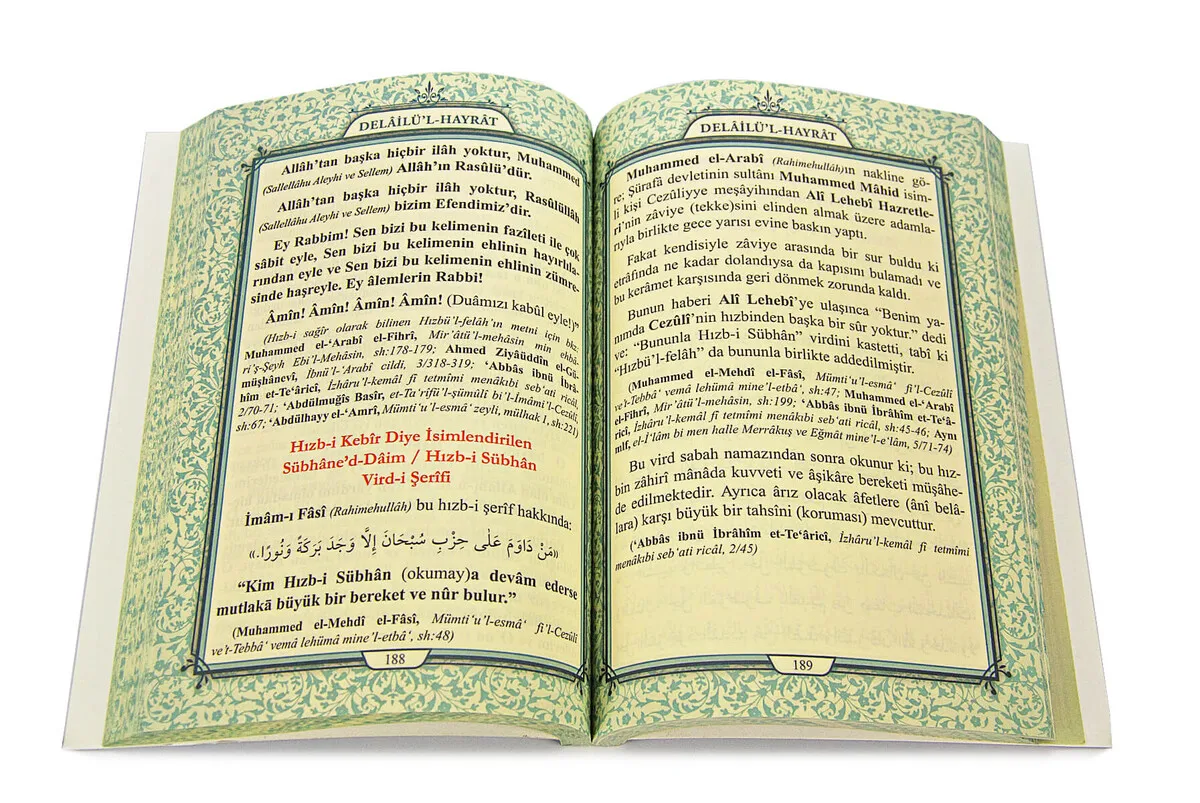 DELÂİLÜ'L-HAYRÂT
Allâh'tan başka hiçbir ilâh yoktur, Muhammed
(Sallellâhu Aleyhi ve Sellem) Allâh'ın Rasûlü'dür.
Allâh'tan başka hiçbir ilâh yoktur, Rasûlüllâh
(Sallellâhu Aleyhi ve Sellem) bizim Efendimiz'dir.
Ey Rabbim! Sen bizi bu kelimenin fazîleti ile çok
sâbit eyle, Sen bizi bu kelimenin ehlinin hayırlıla-
rından eyle ve Sen bizi bu kelimenin ehlinin zümre-
sinde haşreyle. Ey âlemlerin Rabbi!
Âmîn! Âmîn! Âmîn! Âmîn! (Duâmızı kabûl eyle!)”
(Hızb-i sağîr olarak bilinen Hızbü'l-felâh'ın metni için bkz:
Muhammed el-‘Arabî el-Fihrî, Mir'âtü'l-mehâsin min ehbâ-
ri'ş-Şeyh Ebi'l-Mehâsin, sh:178-179; Ahmed Ziyâüddîn el-Gü-
müşhânevî, İbnü'l-‘Arabî cildi, 3/318-319; ‘Abbâs ibnü İbrâ-
hîm et-Te‘âricî, İzhâru'l-kemâl fî tetmîmi menâkıbi seb‘ati ricâl,
2/70-71; ‘Abdülmuğîs Basîr, et-Ta‘rîfü'l-şümûlî bi'l-İmâmi'l-Cezûlî,
sh:67; ‘Abdülhayy el-‘Amrî, Mümti‘u'l-esmâ‘ zeyli, mülhak 1, sh:221)
Hızb-i Kebîr Diye İsimlendirilen
Sübhâne'd-Dâim / Hızb-i Sübhân
Vird-i Şerîfi
İmâm-ı Fâsî (Rahimehullâh) bu hızb-i şerîf hakkında:
«مَنْ دَاوَمَ عَلٰى حِزْبِ سُبْحَانَ إِلَّا وَجَدَ بَرَكَةً وَنُورًا.»
“Kim Hızb-i Sübhân (okumay)a devâm ederse
mutlakā büyük bir bereket ve nûr bulur.”
(Muhammed el-Mehdî el-Fâsî, Mümti‘u'l-esmâ‘ fi'l-Cezûlî
ve't-Tebbâ‘ vemâ lehümâ mine'l-etbâ‘, sh:48)
188
DELÂİLÜ'L-HAYRÂT
Muhammed el-Arabî (Rahimehullâh)ın nakline gö-
re; Şürafâ devletinin sultânı Muhammed Mâhid isim-
li kişi Cezûliyye meşâyihından Alî Lehebî Hazretle-
ri'nin zâviye (tekke)sini elinden almak üzere adamla-
rıyla birlikte gece yarısı evine baskın yaptı.
Fakat kendisiyle zâviye arasında bir sur buldu ki
etrâfında ne kadar dolandıysa da kapısını bulamadı ve
bu kerâmet karşısında geri dönmek zorunda kaldı.
Bunun haberi Alî Lehebî'ye ulaşınca “Benim ya-
nımda Cezûlî'nin hızbinden başka bir sûr yoktur.” dedi
ve: “Bununla Hızb-i Sübhân” virdini kastetti, tabî ki
“Hızbü'l-felâh” da bununla birlikte addedilmiştir.
(Muhammed el-Mehdî el-Fâsî, Mümti‘u'l-esmâ‘ fi'l-Cezûlî
ve't-Tebbâ‘ vemâ lehümâ mine'l-etbâ‘, sh:47; Muhammed el-‘Arabî
el-Fihrî, Mir'âtü'l-mehâsin, sh:199; ‘Abbâs ibnü İbrâhîm et-Te‘â-
ricî, İzhâru'l-kemâl fî tetmîmi menâkıbi seb‘ati ricâl, sh:45-46; Aynı
mlf, el-İ‘lâm bi men halle Merrâkuş ve Eğmât mine'l-e‘lâm, 5/71-74)
Bu vird sabah namazından sonra okunur ki; bu hız-
bin zâhirî mânâda kuvveti ve âşikâre bereketi müşâhe-
de edilmektedir. Ayrıca ârız olacak âfetlere (ânî belâ-
lara) karşı büyük bir tahsîni (koruması) mevcuttur.
(‘Abbâs ibnü İbrâhîm et-Te‘âricî, İzhâru'l-kemâl fî tetmîmi
menâkıbi seb‘ati ricâl, 2/45)
189